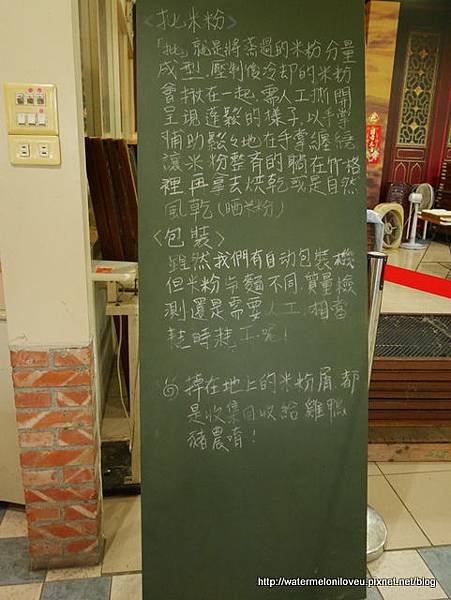 <批米粉>
「批」就是將蒸過的米粉分量
成型.壓制後冷却的米粉
會揪在一起.需人工撕開
呈現逢鬆的樣子.以手掌
輔助鬆々地在手掌纏繞
讓米粉整齊的躺在竹格
裡.再拿去烘乾或是自然
風乾(晒米粉)
<包裝>
雖然我們有自动包裝機
但米粉与麵不同.質量檢
測還是需要人工.相當
耗時耗工呢!
◎掉在地上的米粉屑.都
是收集回收給雞鴨
豬農唷!
http://watermeloniloveu.pixnet.net/blog